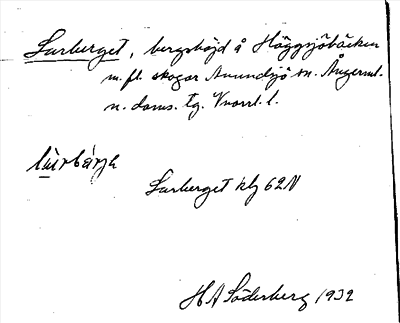 Lurberget, bergshöjd å Häggsjöbäcken
m. fl. skogar Anundsjö sn. Ångerml.
n. doms. tg. Vnorrl. l.
Lurberget klg 62N
H A Söderberg 1932